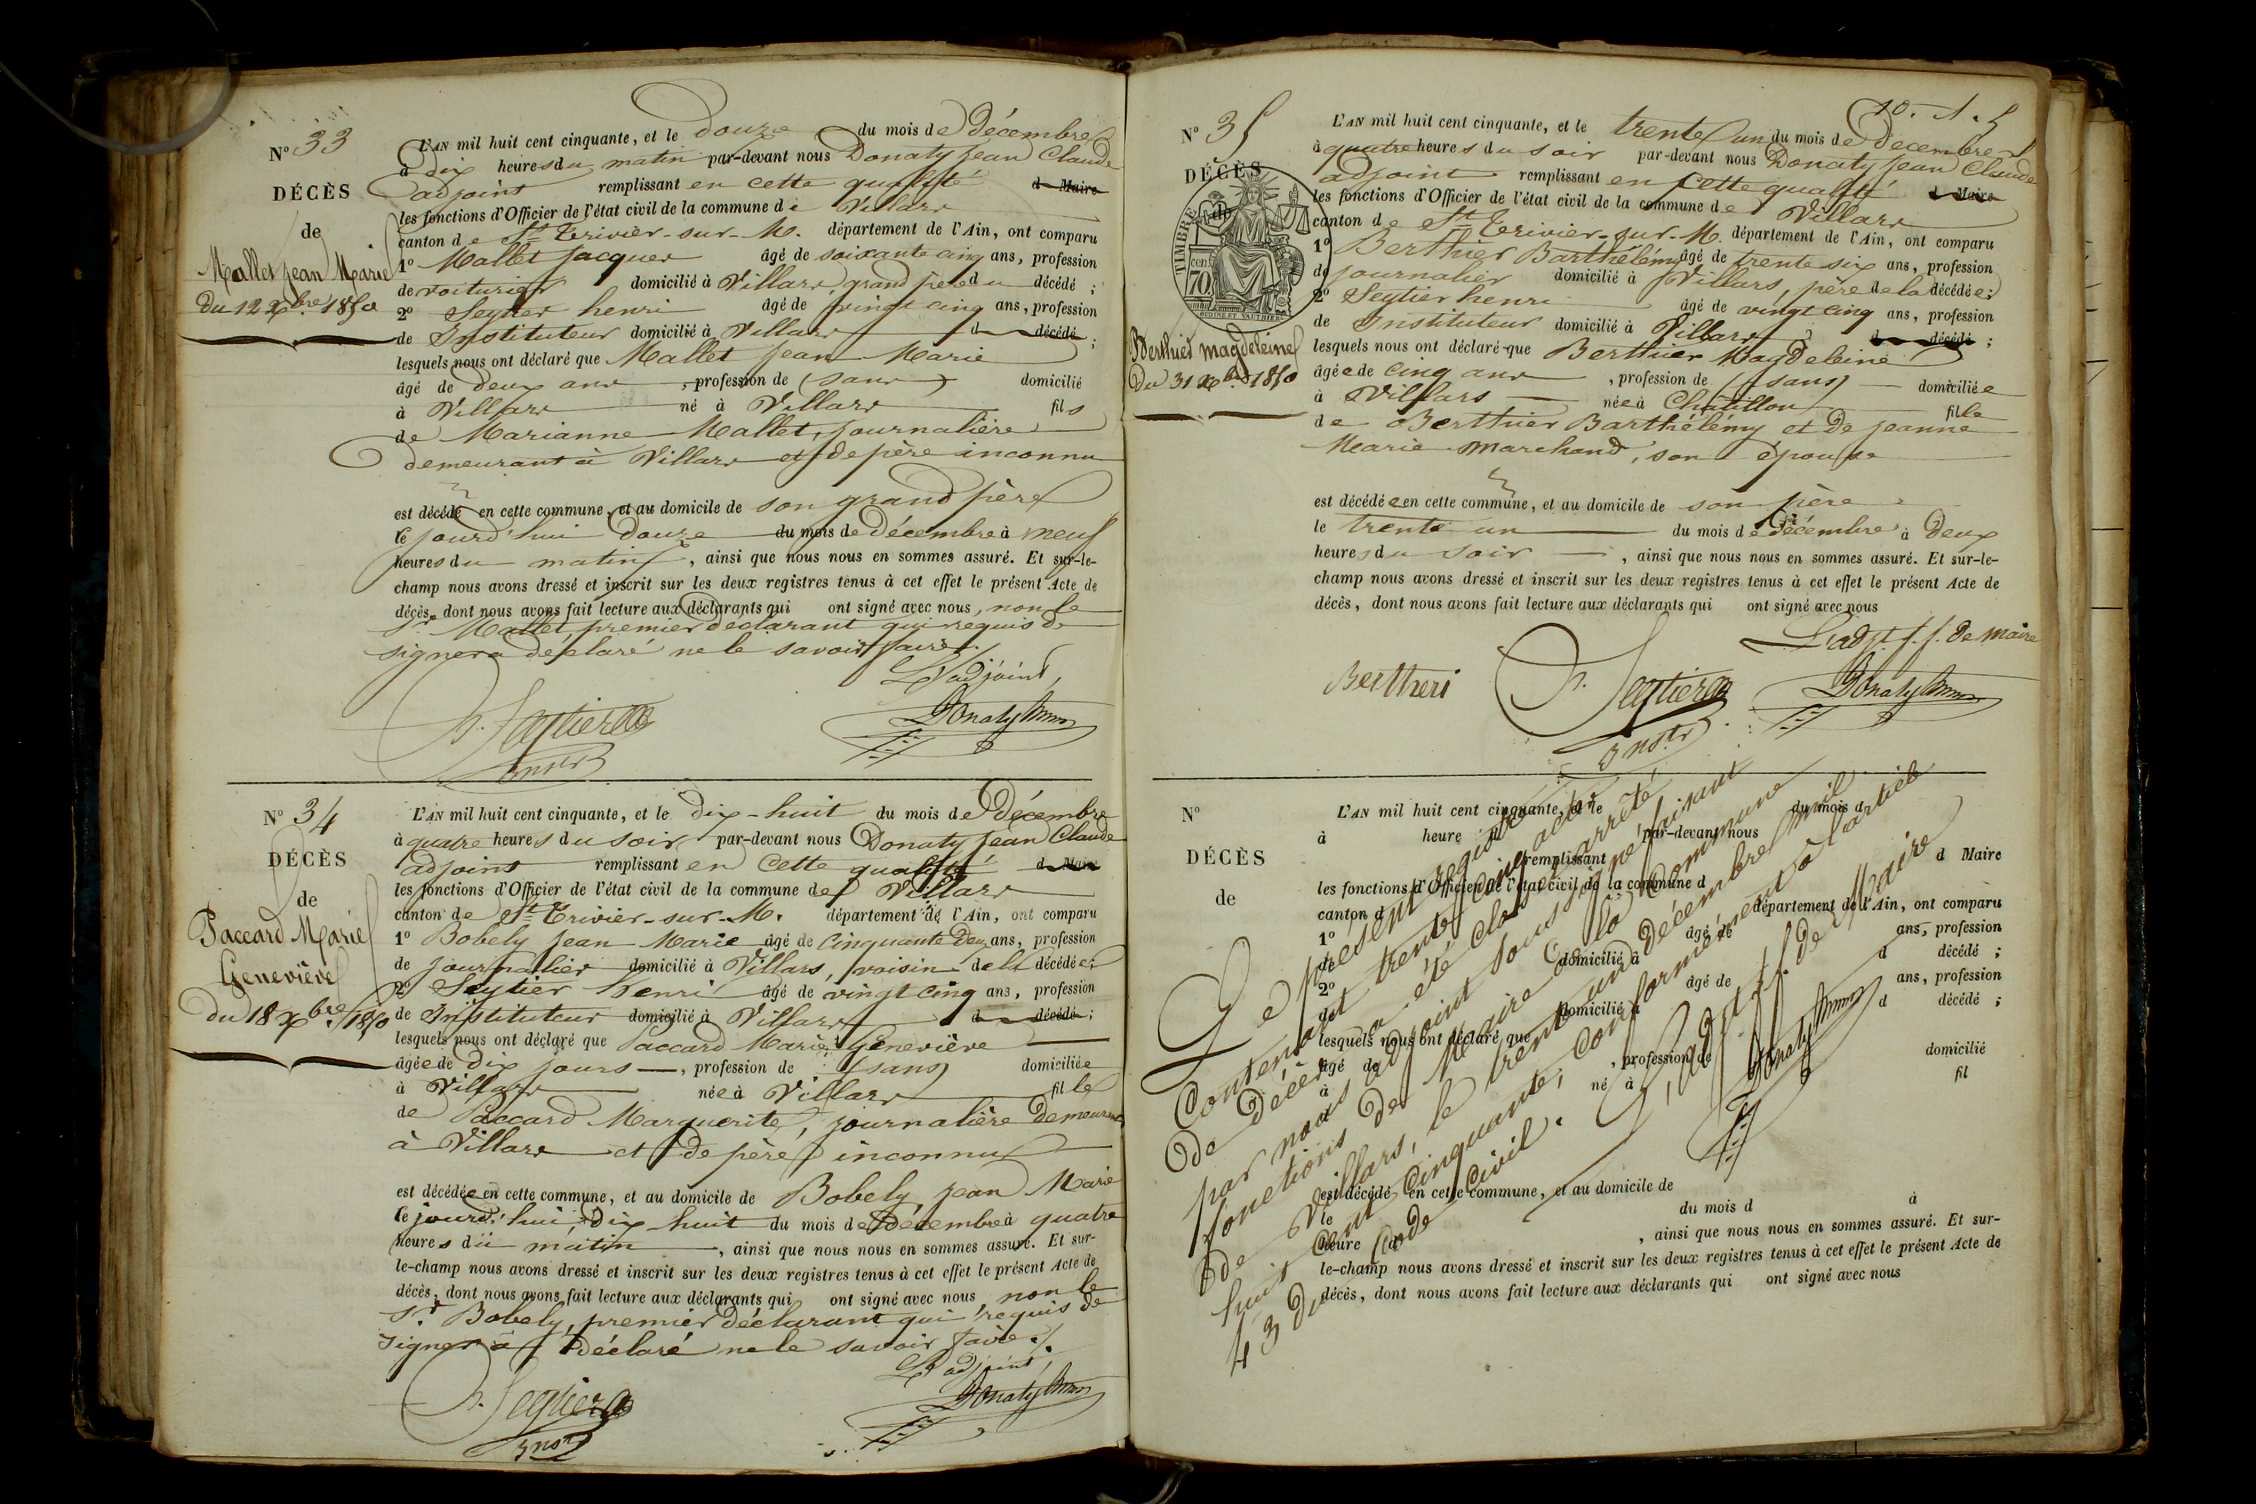 N° 33
DÉCÈS
de
Mallet Jean Marie
du 12 Xbre 1850
L'AN mil huit cent cinquante, et le douze du mois de Décembre
à dix heures du matin par-devant nous Donaty Jean Claude
adjoint remplissant en cette qualité d Maire
les fonctions d'Officier de l'état civil de la commune de Villars
canton de St Trivier-sur-Ms. département de l'Ain, ont comparu
1° Mallet Jacques âgé de soixante cinq ans, profession
de voiturier domicilié à Villars, grand père du décédé ;
2° Seytier henri âgé de vingt cinq ans, profession
de Instituteur domicilié à Villars d décédé ;
lesquels nous ont déclaré que Mallet Jean Marie
âgé de deux ans, profession de (sans) domicilié
à Villars né à Villars fils
de Marianne Mallet, journalière
demeurant à Villars et de père inconnu
est décédé en cette commune, et au domicile de son grand père
le jourd'hui douze du mois de décembre à neuf
heures du matin, ainsi que nous nous en sommes assuré. Et sur-le-
champ nous avons dressé et inscrit sur les deux registres tenus à cet effet le présent Acte de
décès, dont nous avons fait lecture aux déclarants qui ont signé avec nous, non le
Sr Mallet, premier déclarant qui requis de
signer a déclaré ne le savoir faire.
L'adjoint,
h. Seytier Donaty
Instr
N° 34
DÉCÈS
de
Paccard Marie
Geneviève
du 18 Xbre 1850
L'AN mil huit cent cinquante, et le dix-huit du mois de Décembre
à quatre heures du soir par-devant nous Donaty Jean Claude
adjoint remplissant en cette qualité d Maire
les fonctions d'Officier de l'état civil de la commune de Villars
canton de St Trivier-sur-M. département de l'Ain, ont comparu
1° Bobely Jean Marie âgé de cinquante deux ans, profession
de journalier domicilié à Villars, voisin de la décédée ;
2° Seytier henri âgé de vingt cinq ans, profession
de Instituteur domicilié à Villars d décédé ;
lesquels nous ont déclaré que Paccard Marie Geneviève
âgée de dix jours, profession de (sans) domiciliée
à Villars née à Villars fille
de Paccard Marguerite, journalière demeurant
à Villars et de père inconnu
est décédée en cette commune, et au domicile de Bobely Jean Marie
le jourd'hui, dix huit du mois de Décembre à quatre
heures du matin, ainsi que nous nous en sommes assuré. Et sur-
le-champ nous avons dressé et inscrit sur les deux registres tenus à cet effet le présent Acte de
décès, dont nous avons fait lecture aux déclarants qui ont signé avec nous non le
Sr. Bobely, premier déclarant qui requis de
signer a déclaré ne le savoir faire./.
L'adjoint,
h. Seytier Donaty
Instr
10. 1. 5
N° 35
DÉCÈS
TIMBRE
70
Berthier Magdeleine
Du 31 Xbre 1850
L'AN mil huit cent cinquante, et le trente un du mois de Décembre
à quatre heures du soir par-devant nous Donaty Jean Claude
adjoint remplissant en cette qualité d Maire
les fonctions d'Officier de l'état civil de la commune de Villars
canton de St Trivier-sur-M. département de l'Ain, ont comparu
1° Berthier Barthélémy âgé de trente six ans, profession
de journalier domicilié à Villars, père de la décédée ;
2° Seytier henri âgé de vingt cinq ans, profession
de Instituteur domicilié à Villars d décédé ;
lesquels nous ont déclaré que Berthier Magdeleine
âgée de cinq ans, profession de (sans) domiciliée
à Villars née à Châtillon fille
de Berthier Barthélémy et de Jeanne
Marie Marchand, son épouse
est décédée en cette commune, et au domicile de son père
le trente un du mois de Décembre à deux
heures du soir, ainsi que nous nous en sommes assuré. Et sur-le-
champ nous avons dressé et inscrit sur les deux registres tenus à cet effet le présent Acte de
décès, dont nous avons fait lecture aux déclarants qui ont signé avec nous
L'adjt. f. f. de maire
Bertheri h. Seytier Donaty
Instr
N°
DÉCÈS
de
L'AN mil huit cent cinquante, et le du mois d
à heure d par-devant nous
remplissant d Maire
les fonctions d'Officier de l'état civil de la commune d
canton d département de l'Ain, ont comparu
1° âgé de ans, profession
de domicilié à d décédé ;
2° âgé de ans, profession
de domicilié à d décédé ;
lesquels nous ont déclaré que
âgé de , profession de domicilié
à né à fil
est décédé en cette commune, et au domicile de
le du mois d à
heure d , ainsi que nous nous en sommes assuré. Et sur-
le-champ nous avons dressé et inscrit sur les deux registres tenus à cet effet le présent Acte de
décès, dont nous avons fait lecture aux déclarants qui ont signé avec nous
Le présent registre
Contenant trente cinq actes
de Décès a été clos et arrêté
par nous adjoint soussigné faisant
fonctions de Maire de la Commune
de Villars, le trente un Décembre mil
huit cent cinquante, conformément à l'article
43 du Code Civil. L'adjt f. f. de Maire
Donaty